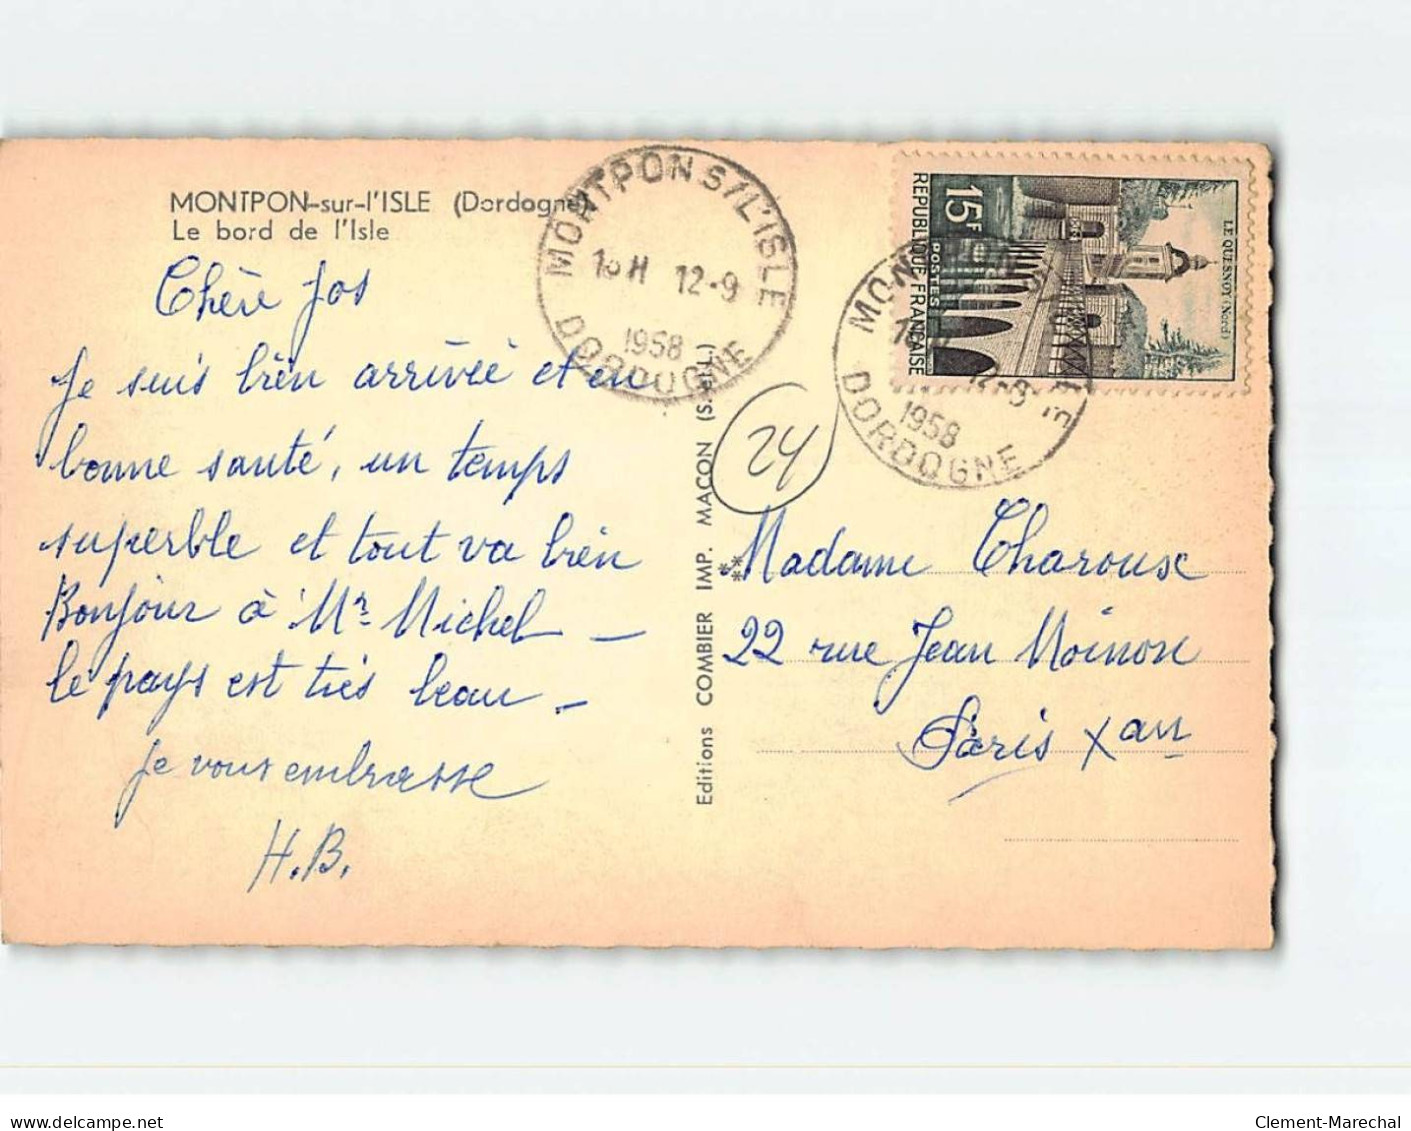 MONTPON-sur-l'ISLE (Dordogne)
Le bord de l'Isle
Chère Jos
Je suis bien arrivée et en
bonne santé, un temps
superble et tout va bien
Bonjour à Mr Michel –
le pays est très beau –
Je vous embrasse
H.B.
MONTPON S/L'ISLE
18H 12-9
1958
DORDOGNE
Editions COMBIER IMP. MACON (S.-&-L.)
24
15F
REPUBLIQUE FRANÇAISE
POSTES
LE QUESNOY (Nord)
MON
12-9
1958
DORDOGNE
Madame Charoux
22 rue Jean Moinon
Paris Xau
delcampe.net
Clement-Marechal